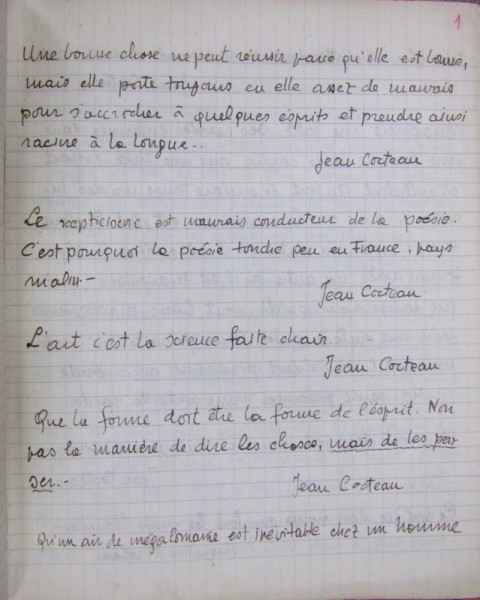 1
Une bonne chose ne peut réussir parce qu'elle est bonne,
mais elle porte toujours en elle assez de mauvais
pour s'accrocher à quelques ésprits et prendre ainsi
racine à la longue..
Jean Cocteau
Le scepticisme est mauvais conducteur de la poésie.
C'est pourquoi la poésie touche peu en France, pays
malin.-
Jean Cocteau
L'art c'est la science faite chair.
Jean Cocteau
Que la forme doit être la forme de l'ésprit. Non
pas la manière de dire les choses, mais de les pen
ser.-
Jean Cocteau
Qu'un air de mégalomanie est inévitable chez un homme